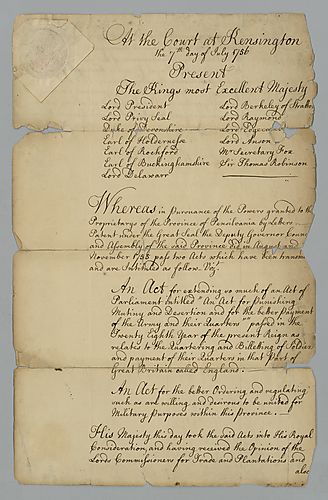 At the Court at Kensington
the 7th day of July 1756
Present
The Kings most Excellent Majesty
Lord President
Lord Privy Seal
Duke of Devonshire
Earl of Holdernesse
Earl of Rochford
Earl of Buckinghamshire
Lord Delawarr
Lord Berkeley of Stratton
Lord Raymond
Lord Edgcumbe
Lord Anson
Mr Secretary Fox
Sir Thomas Robinson
Whereas in Pursuance of the Powers granted to the
Proprietarys of the Province of Pensilvania by Letters
Patent under the Great Seal the Deputy Governor Counc
and Assembly of the said Province did in August and
November 1755 pass two Acts which have been transm
and are Intituled as follow. Vizt
An Act for extending so much of an Act of
Parliament entitled "An Act for Punishing
Mutiny and Desertion and for the better Payment
of the Army and their Quarters" passed in the
Twenty Eighth Year of the present Reign as
relates to the Quartering and Billetting of Soldier
and payment of their Quarters in that Part of
Great Britain called England.
An Act for the better Ordering and regulating
such as are willing and desirous to be united for
Military Purposes within this Province.
His Majesty this day took the said Acts into His Royal
Consideration, and having received the Opinion of the
Lords Commissioners for Trade and Plantations, and
also